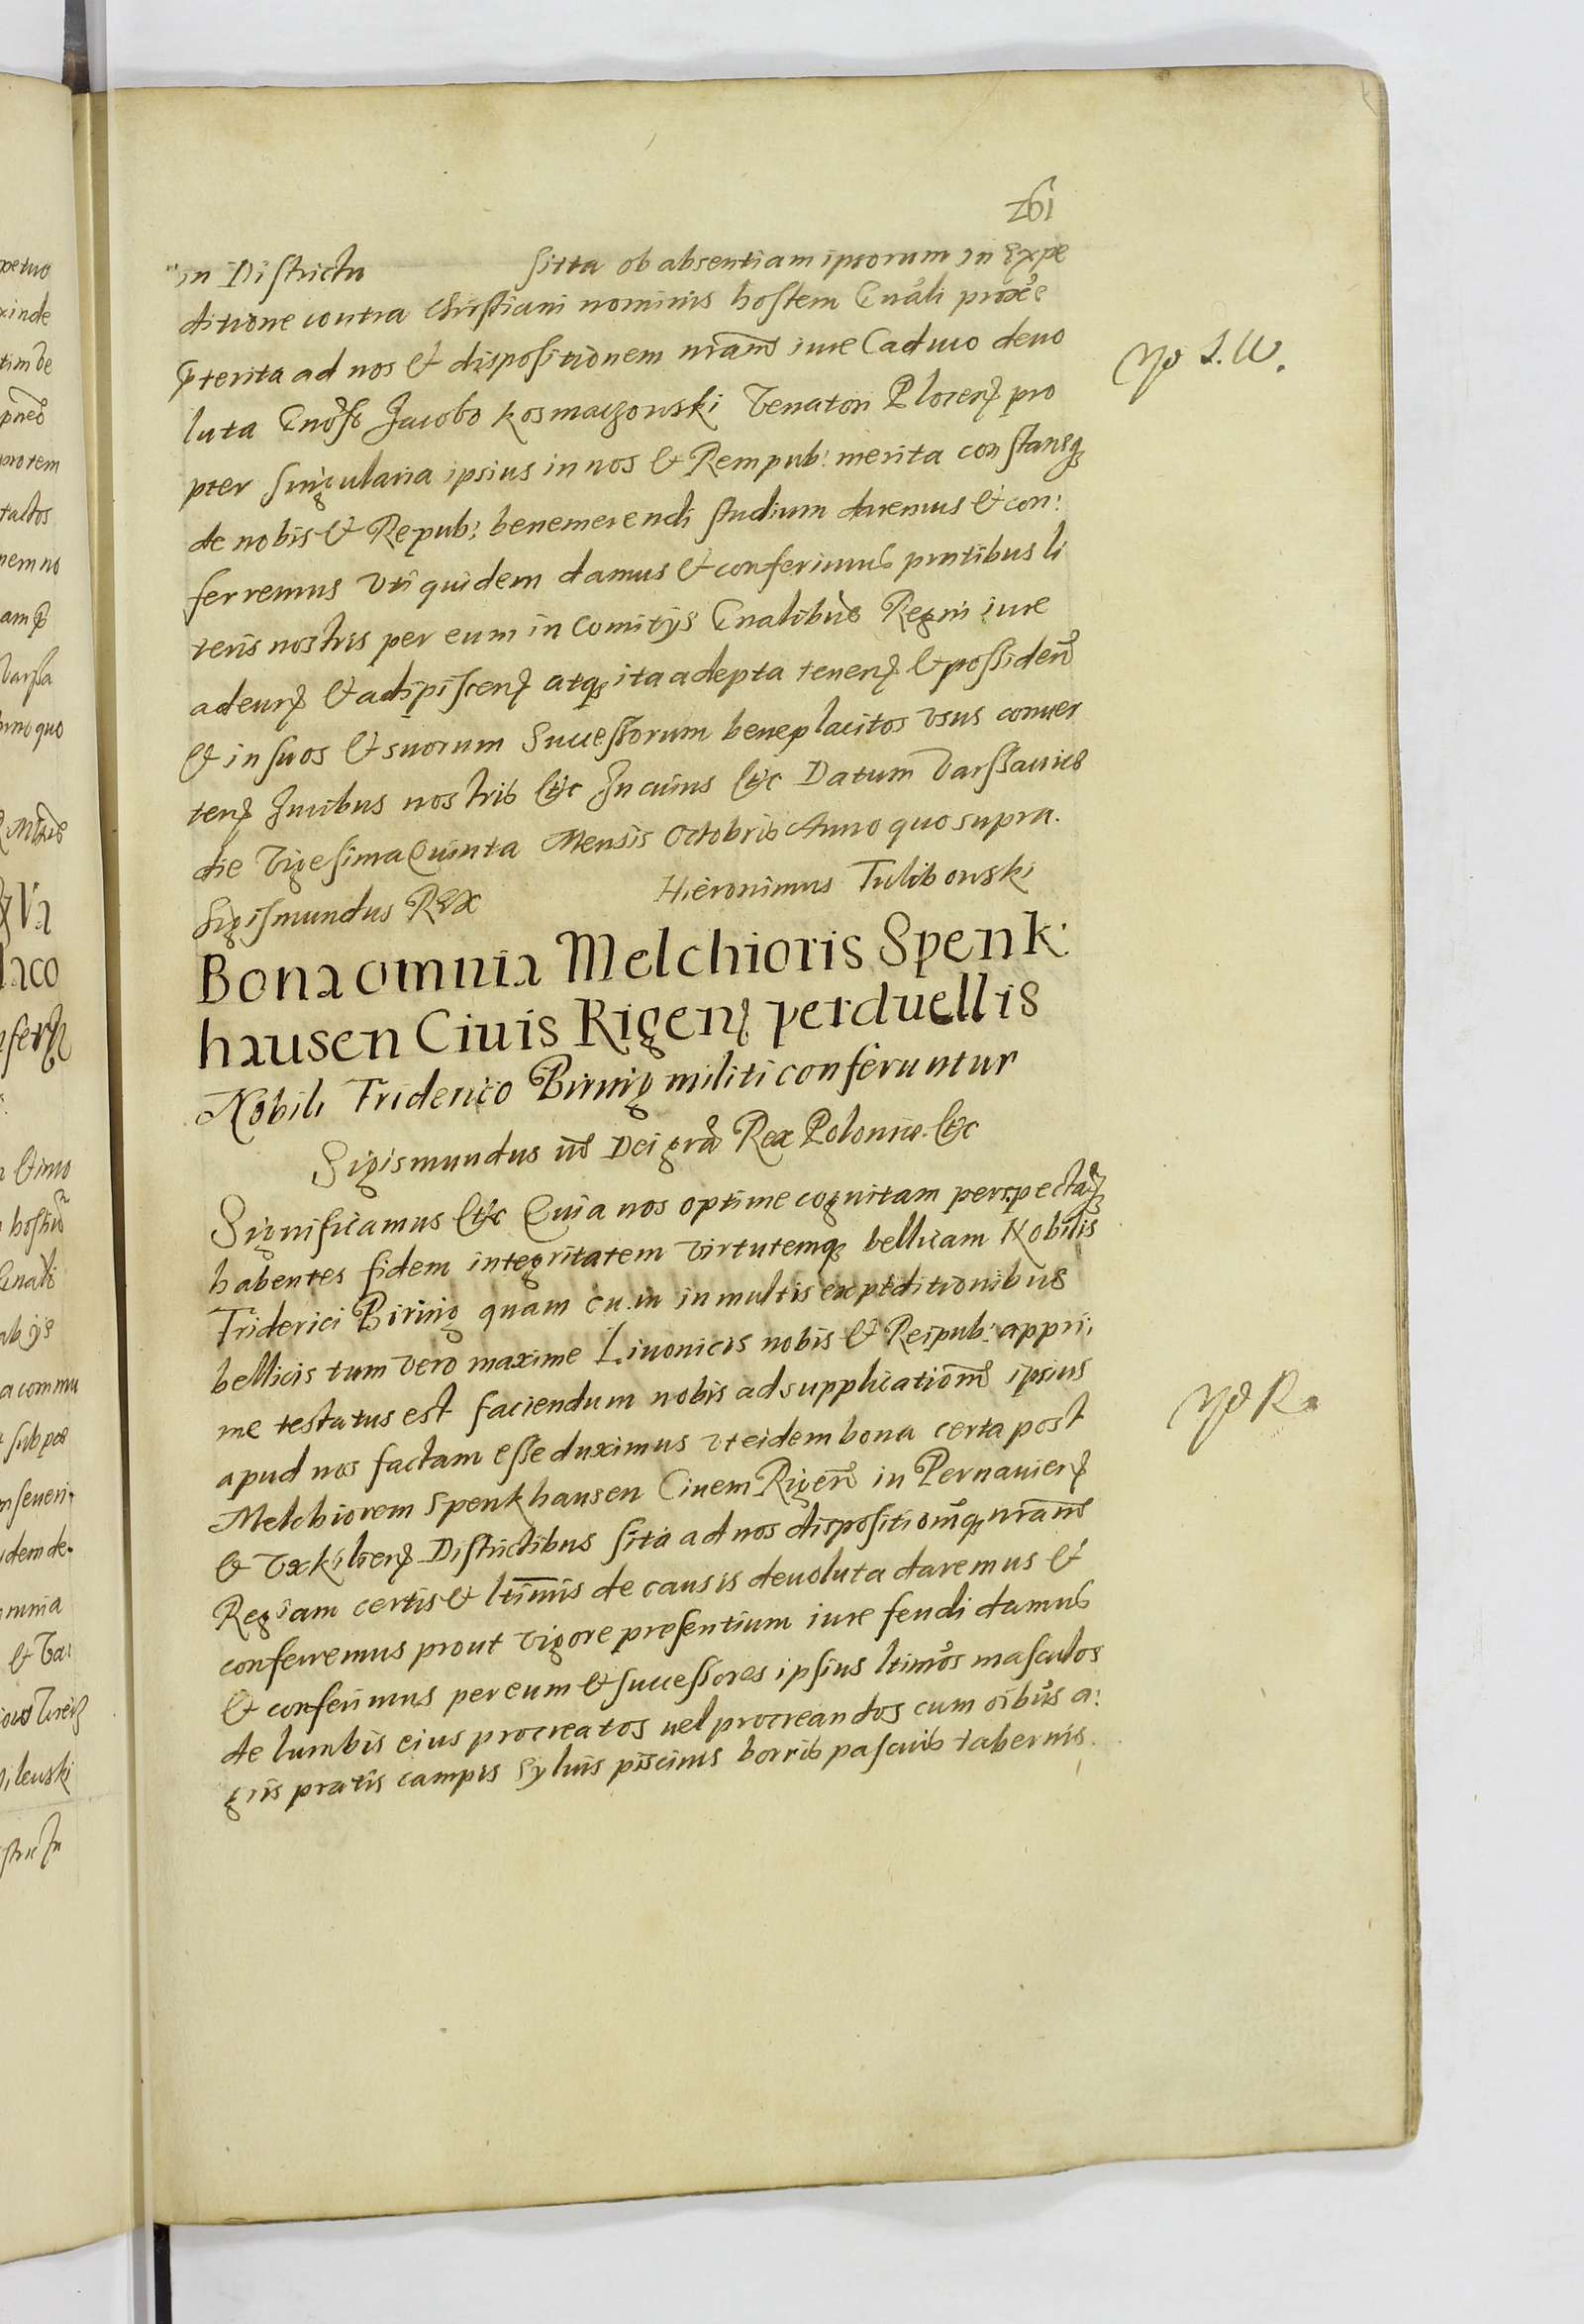 261
in Districtu sitta ob absentiam ipsorum in Expe
ditione contra Christiani nominis hostem Gnãli proxe
pterita ad nos & dispositionem nram iure Caduco devo
luta Gnoso Jacobo Kosmaczowski Venatori Plocen pro
pter singularia ipsius in nos & Rempub: merita constansq
de nobis & Repub: benemerendi studium daremus & con:
ferremus Vti quidem damus & conferimus pntibus li
teris nostris per eum in Comitys Gnalibus Regni iure
adeun & adipiscen atq ita adepta tenen & possiden
& in suos & suorum Successorum beneplacitos vsus conver
ten Juribus nostris &c In cuius &c Datum Varssaviae
die Vigesima Quinta Mensis Octobris Anno quo supra.
Sigismundus Rex Hieronimus Tulibowski
Bona omnia Melchioris Spenk:
hausen Civis Rigen perduellis
Nobili Friderico Biring militi conferuntur
Sigismundus iiis Dei gra Rex Poloniae &c
Significamus &c Quia nos optime cognitam perspectaq
habentes fidem integritatem virtutemq bellicam Nobilis
Friderici Biring quam cum in multis expeditionibus
bellicis tum vero maxime Livonicis nobis & Reipub: appri:
me testatus est faciendum nobis ad supplicationem ipsius
apud nos factam esse duximus vt eidem bona certa post
Melchiorem Spenkhausen Civem Rigen in Pernavien
& Vxkilien Districtibus sita ad nos dispositiomq nram
Regiam certis & ltimis de causis devoluta daremus &
conferremus prout vigore presentium iure feudi damus
& conferimus per eum & successores ipsius ltimos masculos
de lumbis eius procreatos vel procreandos cum oibus a:
gris pratis campis sylvis piscinis borris pascuis tabernis.